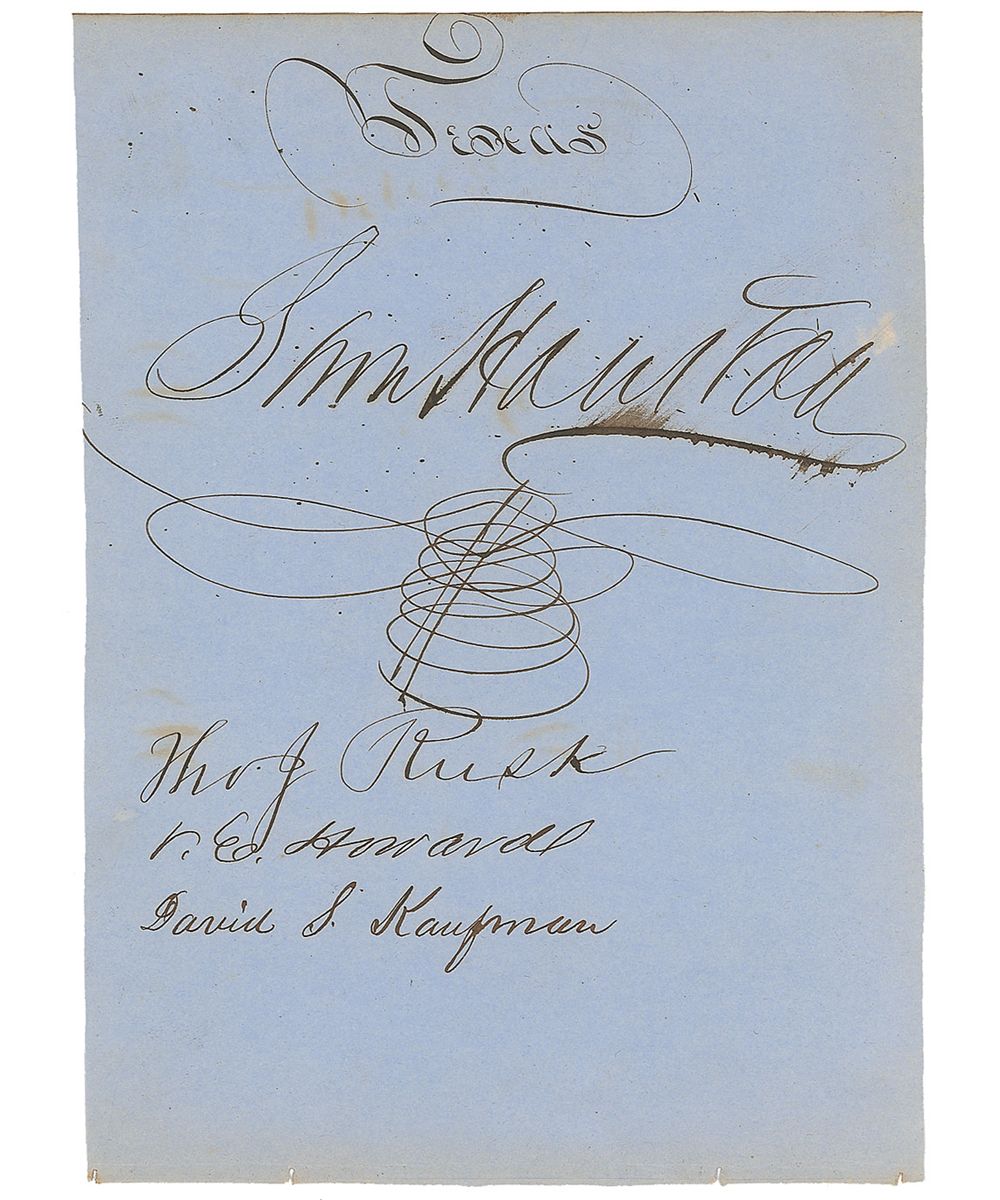 Texas
Sam Houston
Tho J Rusk
V. E. Howard
David S. Kaufman